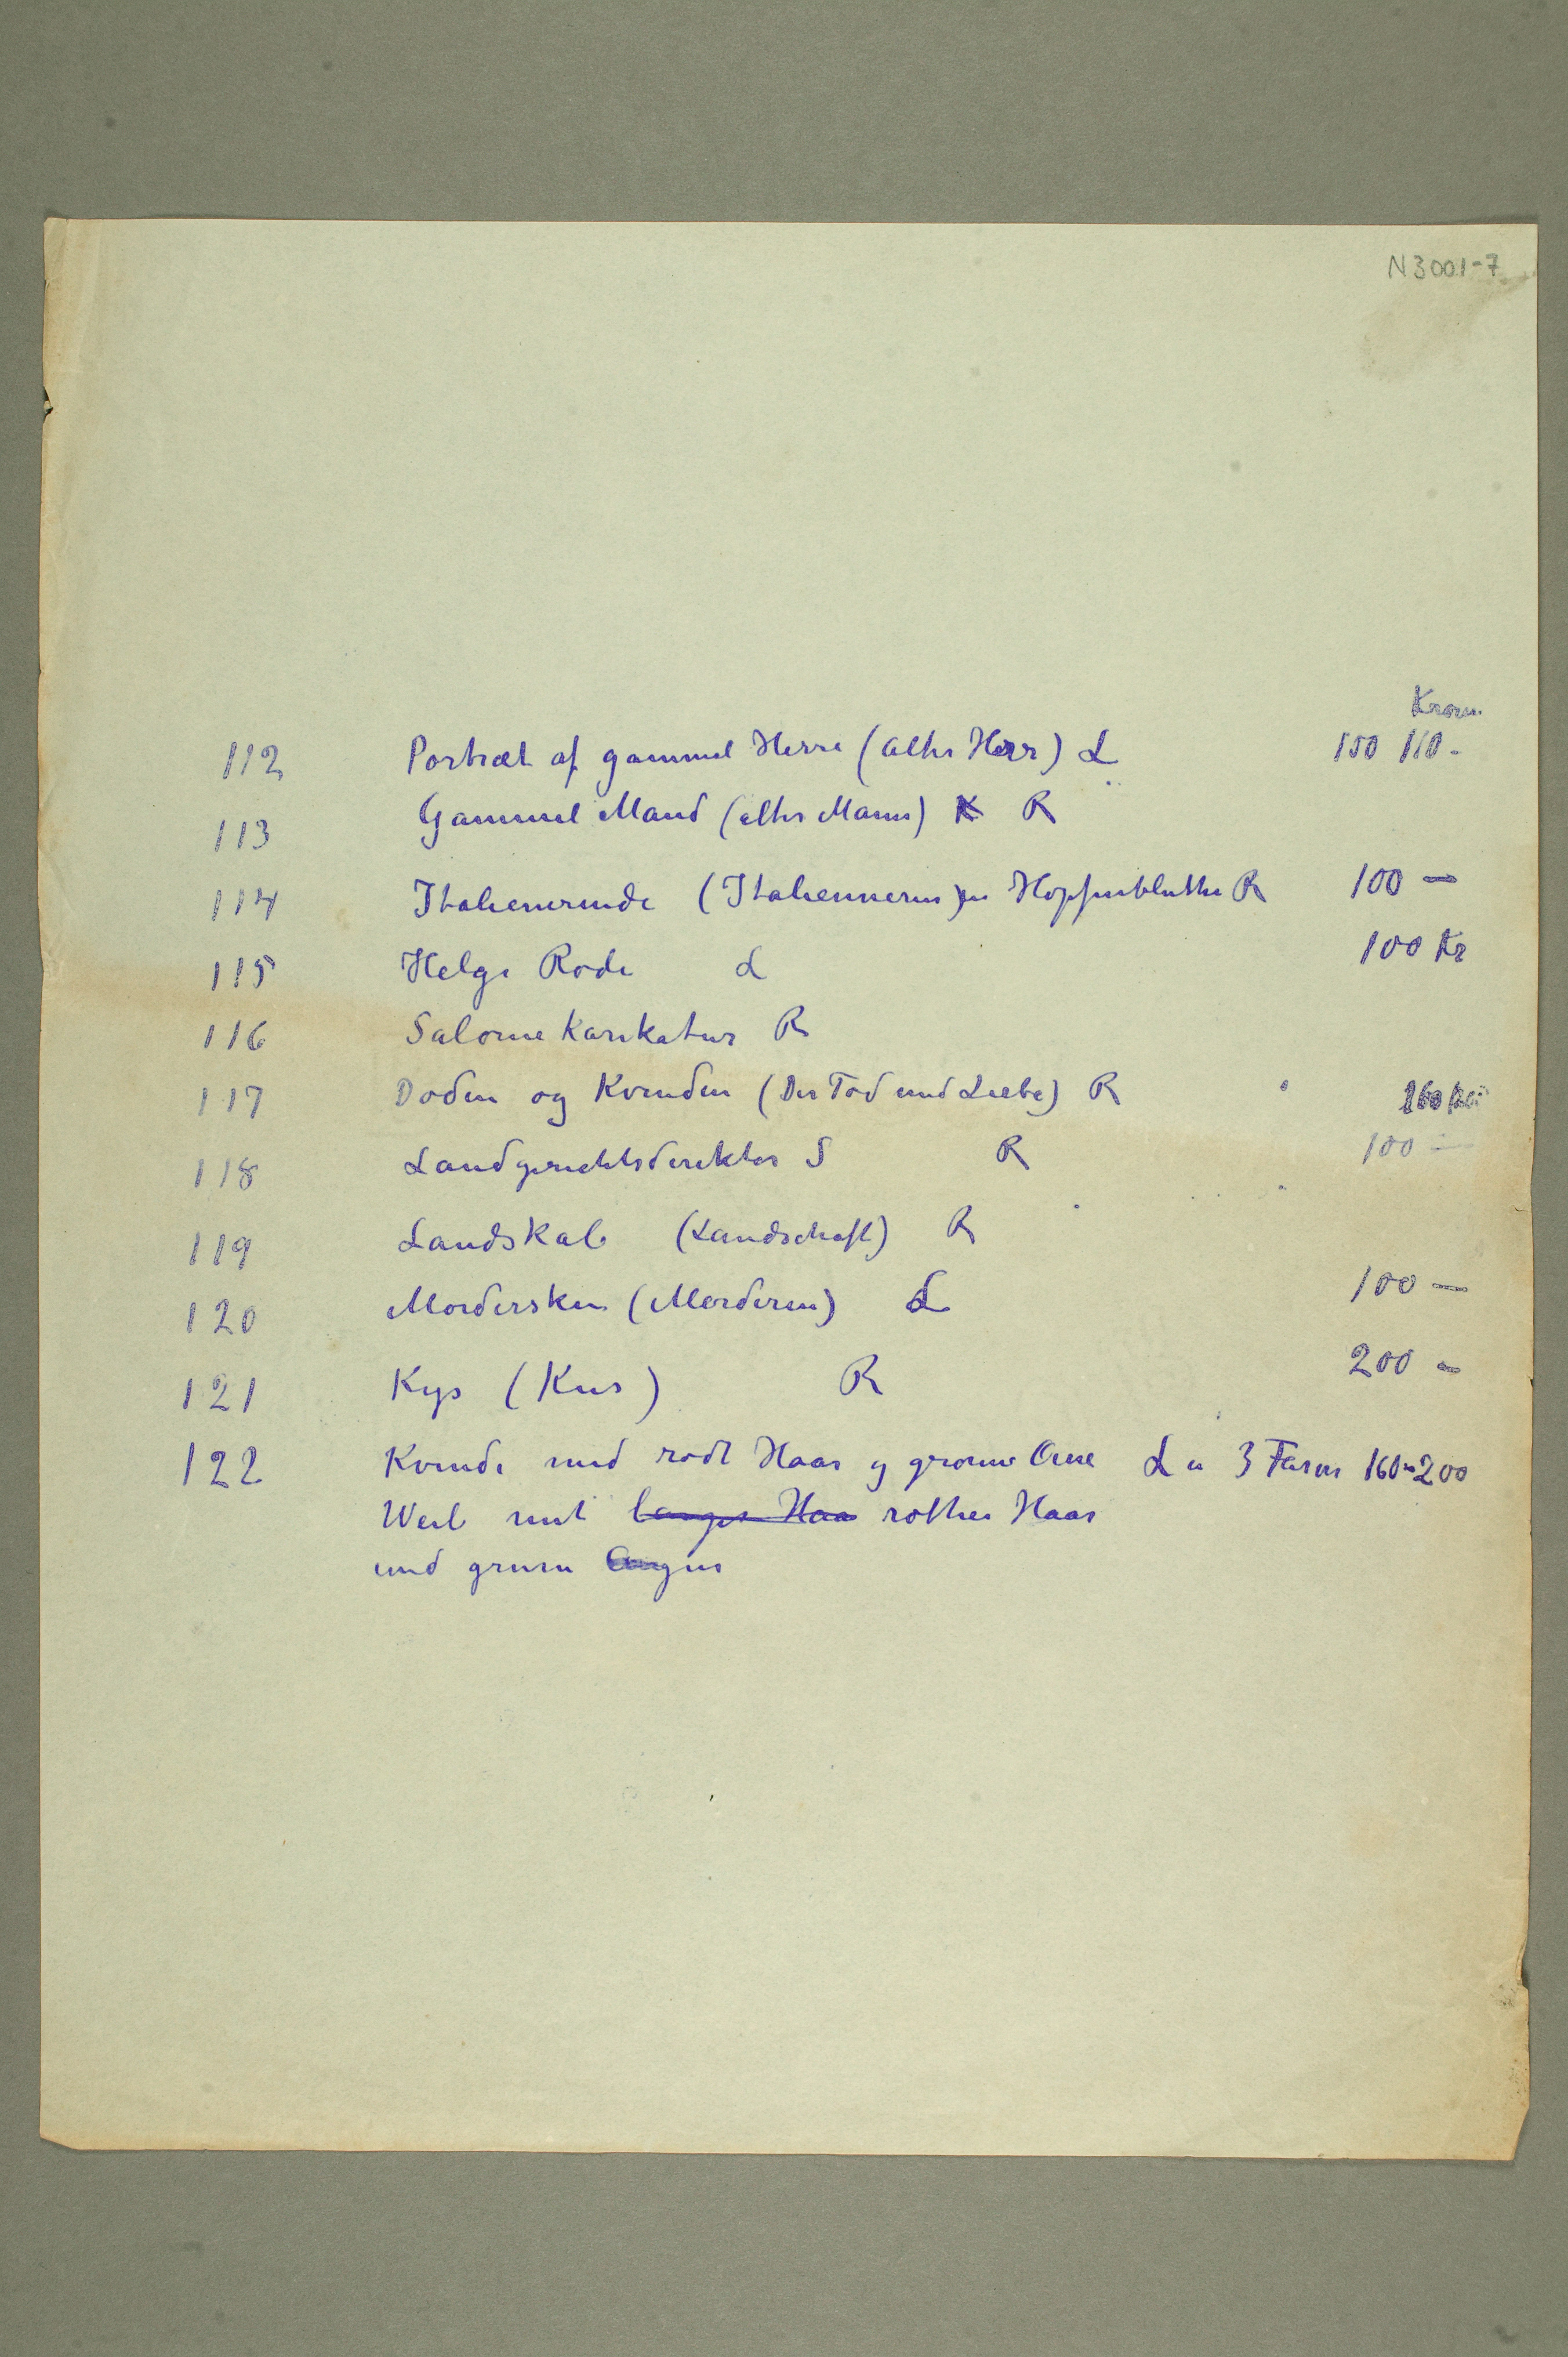 N 3001-7
Kroner
112 Portræt af gammel Herre (alter Herr) L 150 110 -
113 Gammel Mand (alter Mann) K R
114 Italienerinde (Italiennerin) in Hopfenbluthe R 100 —
115 Helge Rode L 100 Kr
116 Salome karikatur R
117 Døden og Kvinden (Der Tod und Liebe) R
118 Landgerichtsdirektor S R 100 —
119 Landskab (Landschaft) R
120 Mordersken (Morderin) L 100 —
121 Kys (Kus) R 200 —
122 Kvinde med rødt Haar og grønne Øine L in 3 Farver 160-200
Weib mit langes Haa rothes Haar
und grunen Augen